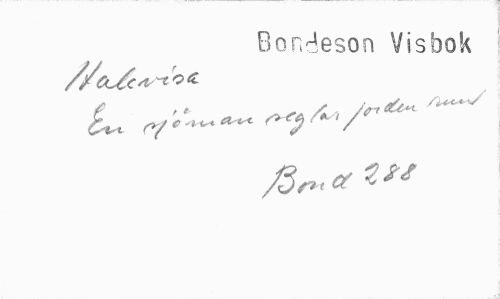 Bondeson Visbok
Halevisa
En sjöman seglar jorden rund
Bond 288